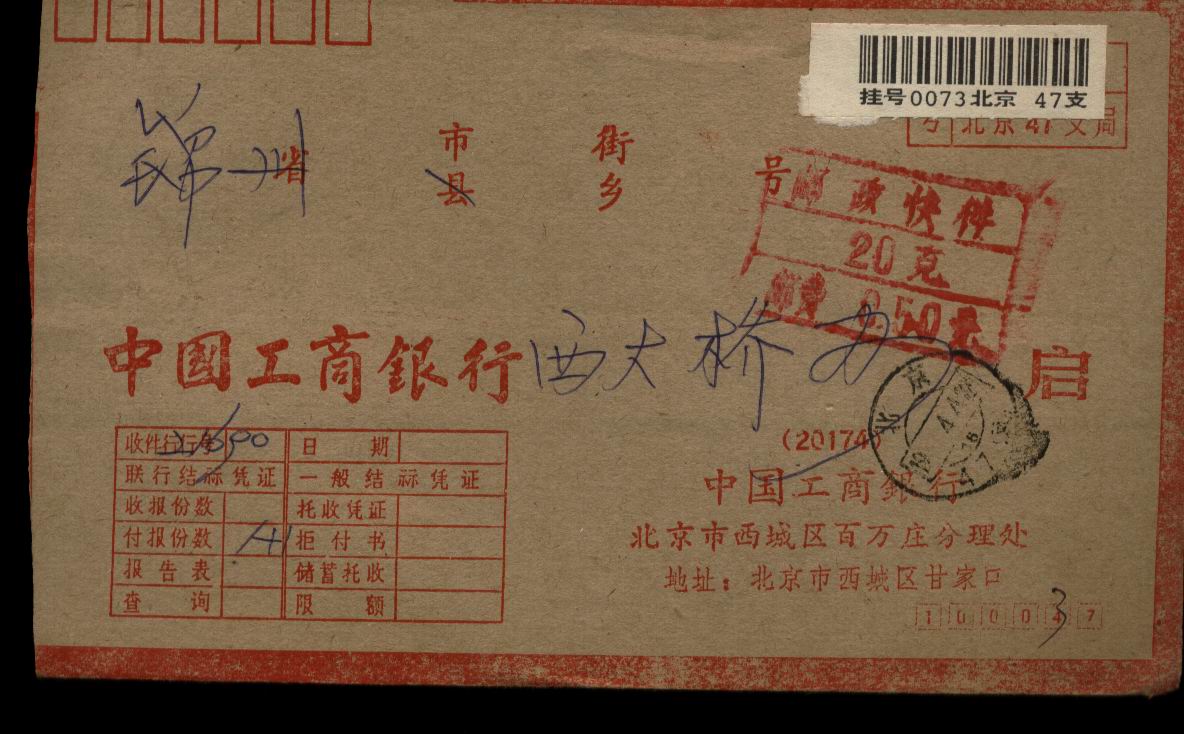 挂号0073北京 47支
号 北京47支局
郑州省 市 街
县 乡 号
邮政快件
20克
邮资 2.50元
中国工商銀行西大桥办 启
收件行行号 日期
联行结标凭证 一般结标凭证
收报份数 托收凭证
付报份数 拒付书
报告表 储蓄托收
查询 限额
(20174)
中国工商銀行
北京市西城区百万庄分理处
地址：北京市西城区甘家口
北京
47